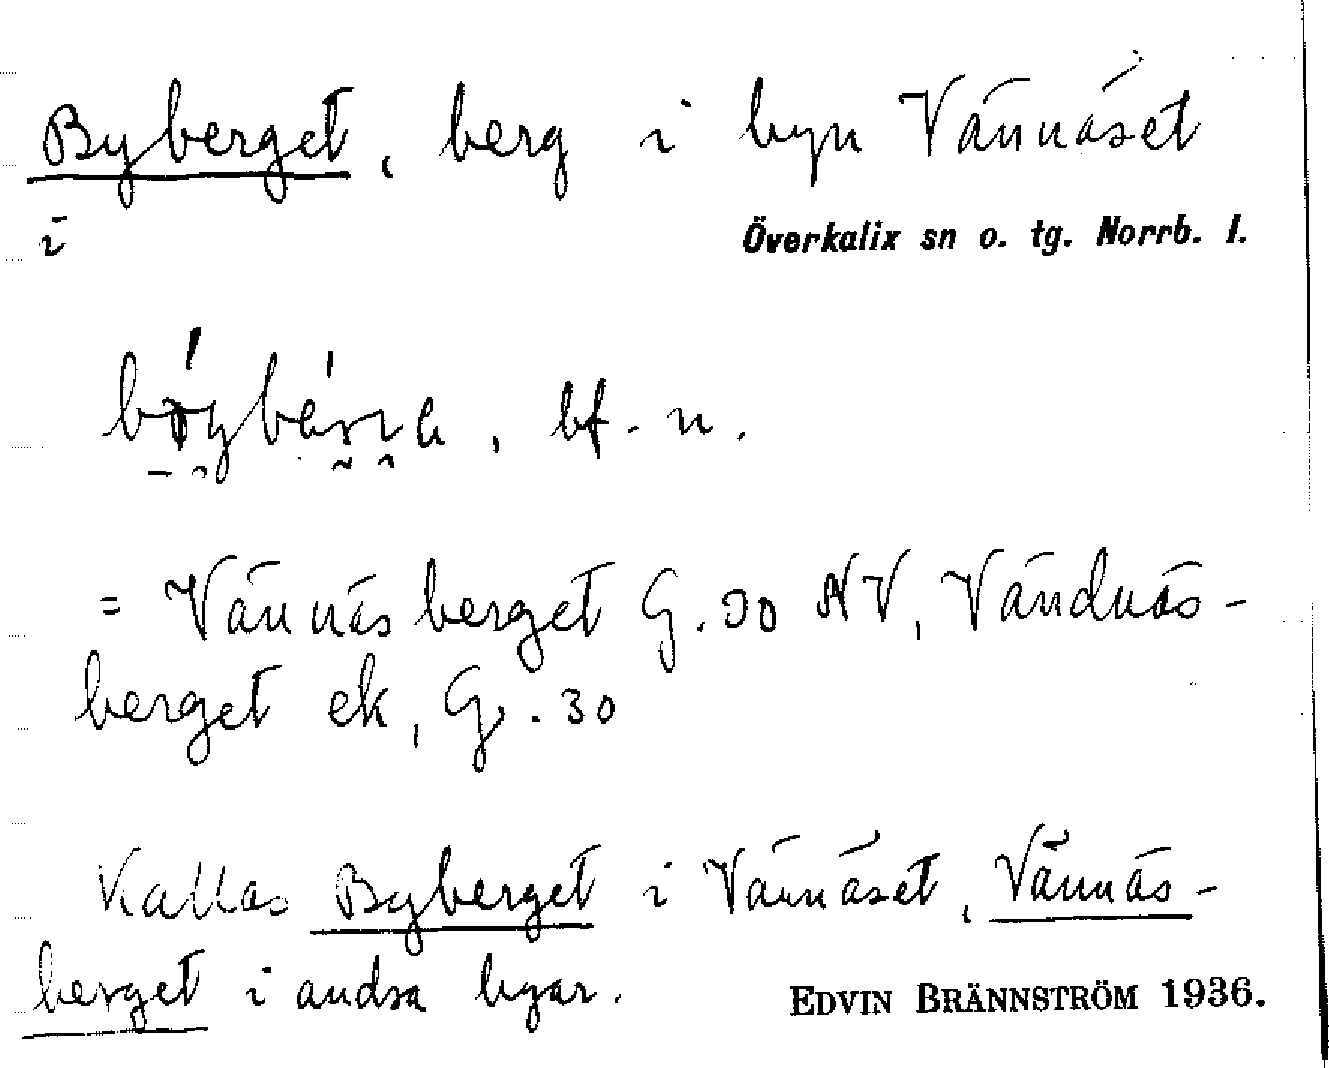 Byberget, berg i byn Vännäset
i
Överkalix sn o. tg. Norrb. l.
bf. n.
= Vännäsberget G. 30 NV, Vändnäs-
berget ek, G. 30
Kallas Byberget i Vännäset, Vännäs-
berget i andra byar.
EDVIN BRÄNNSTRÖM 1936.